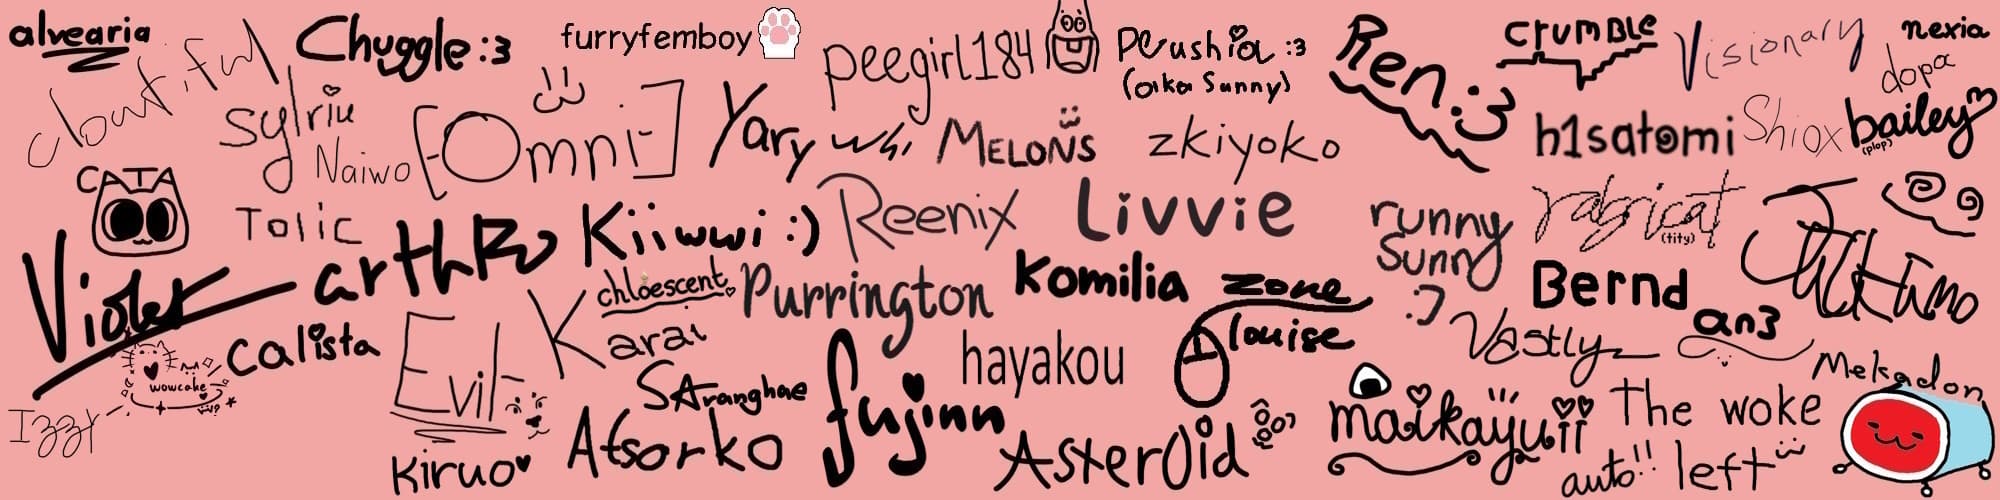 alvearia
cloutiful
Chuggle :3
furryfemboy
peegirl184
Perushia :3
(aka Sunny)
Ren :3
crumble
Visionary
nexia
dopa
sylriu
Naiwo
[-Omni-]
Yary
whi
MELONS
zkiyoko
h1satomi
Shiox
bailey
(plop)
CATA
Tolic
arthro
Kiiwwi :)
Reenix
Livvie
runny
sunny
:)
rabricat
(tity)
Violet
chloescent
Purrington
Komilia
zone
Bernd
an3
calista
Evil-
Karai
hayakou
louise
Vastly
Mekadon
wowcake
Izzy
SAranghae
fujinn
maikayuii
The woke
left
auto!!
Kiruo
Atsorko
Aster0id